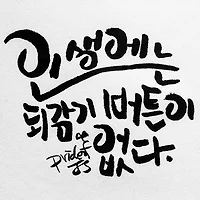 인생에는
되감기 버튼이
없다.